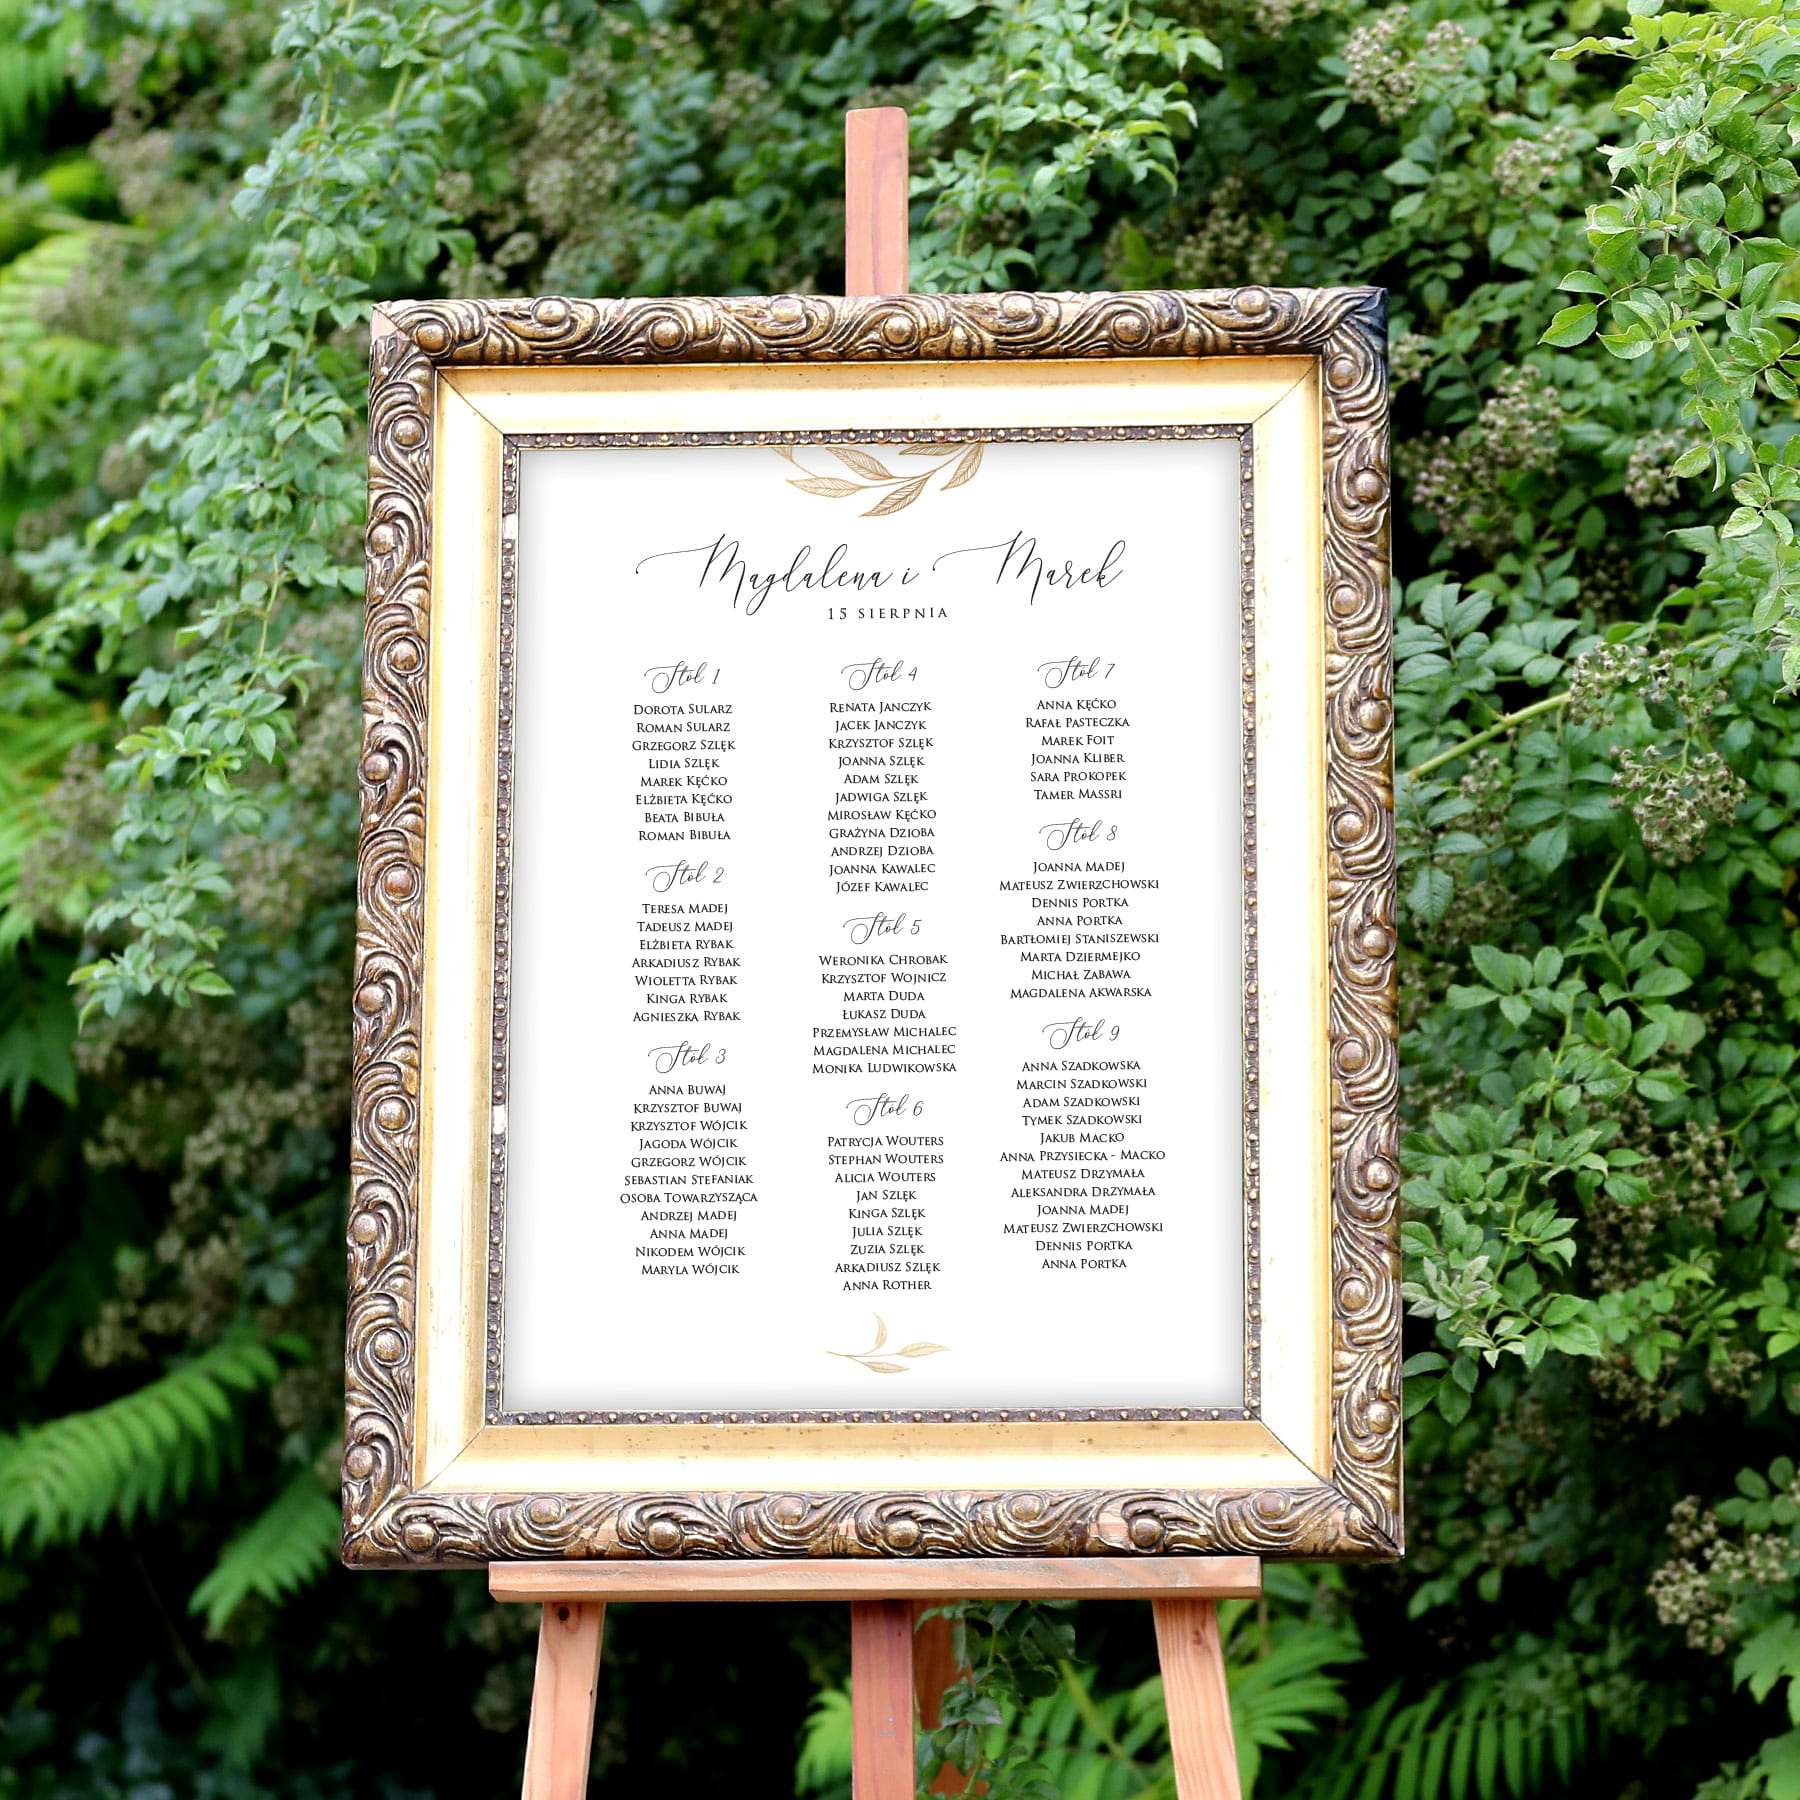 Magdalena i Marek
15 SIERPNIA
Stół 1
DOROTA SULARZ
ROMAN SULARZ
GRZEGORZ SZLĘK
LIDIA SZLĘK
MAREK KĘĆKO
ELŻBIETA KĘĆKO
BEATA BIBUŁA
ROMAN BIBUŁA
Stół 2
TERESA MADEJ
TADEUSZ MADEJ
ELŻBIETA RYBAK
ARKADIUSZ RYBAK
WIOLETTA RYBAK
KINGA RYBAK
AGNIESZKA RYBAK
Stół 3
ANNA BUWAJ
KRZYSZTOF BUWAJ
KRZYSZTOF WÓJCIK
JAGODA WÓJCIK
GRZEGORZ WÓJCIK
SEBASTIAN STEFANIAK
OSOBA TOWARZYSZĄCA
ANDRZEJ MADEJ
ANNA MADEJ
NIKODEM WÓJCIK
MARYLA WÓJCIK
Stół 4
RENATA JANCZYK
JACEK JANCZYK
KRZYSZTOF SZLĘK
JOANNA SZLĘK
ADAM SZLĘK
JADWIGA SZLĘK
MIROSŁAW KĘĆKO
GRAŻYNA DZIOBA
ANDRZEJ DZIOBA
JOANNA KAWALEC
JÓZEF KAWALEC
Stół 5
WERONIKA CHROBAK
KRZYSZTOF WOJNICZ
MARTA DUDA
ŁUKASZ DUDA
PRZEMYSŁAW MICHALEC
MAGDALENA MICHALEC
MONIKA LUDWIKOWSKA
Stół 6
PATRYCJA WOUTERS
STEPHAN WOUTERS
ALICIA WOUTERS
JAN SZLĘK
KINGA SZLĘK
JULIA SZLĘK
ZUZIA SZLĘK
ARKADIUSZ SZLĘK
ANNA ROTHER
Stół 7
ANNA KĘĆKO
RAFAŁ PASTECZKA
MAREK FOIT
JOANNA KLIBER
SARA PROKOPEK
TAMER MASSRI
Stół 8
JOANNA MADEJ
MATEUSZ ZWIERZCHOWSKI
DENNIS PORTKA
ANNA PORTKA
BARTŁOMIEJ STANISZEWSKI
MARTA DZIERMEJKO
MICHAŁ ZABAWA
MAGDALENA AKWARSKA
Stół 9
ANNA SZADKOWSKA
MARCIN SZADKOWSKI
ADAM SZADKOWSKI
TYMEK SZADKOWSKI
JAKUB MACKO
ANNA PRZYSIECKA - MACKO
MATEUSZ DRZYMAŁA
ALEKSANDRA DRZYMAŁA
JOANNA MADEJ
MATEUSZ ZWIERZCHOWSKI
DENNIS PORTKA
ANNA PORTKA